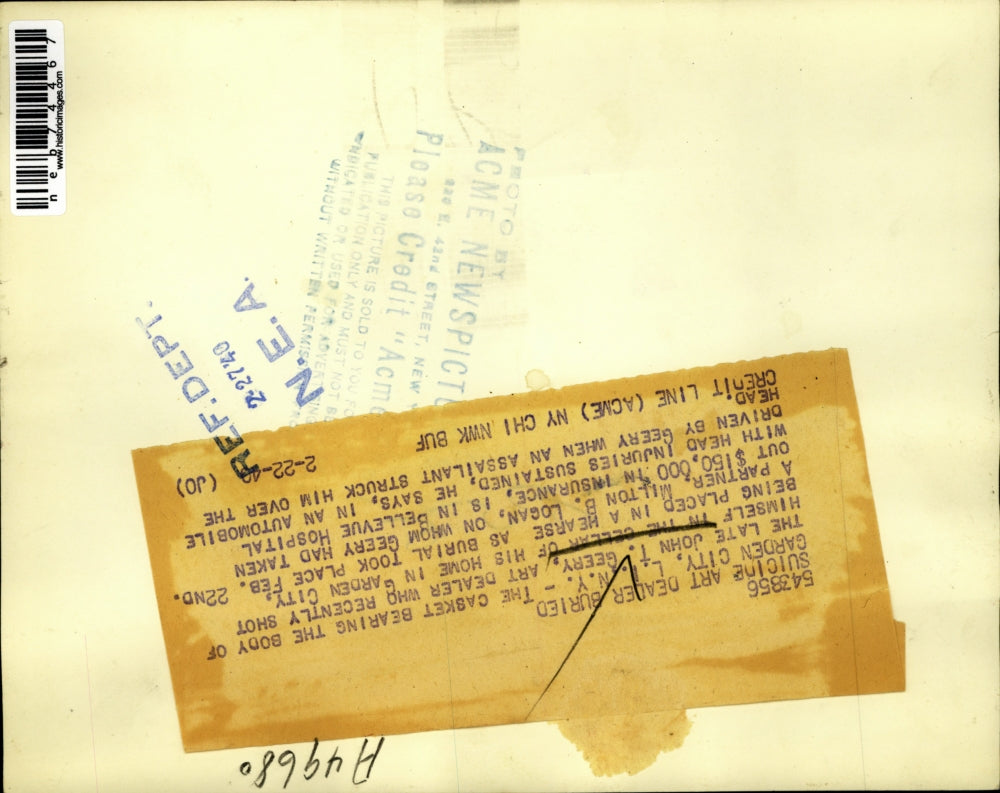 neb74467
www.historicimages.com
PHOTO BY
ACME NEWSPICTU
220 E. 42nd STREET, NEW
Please Credit "Acme
THIS PICTURE IS SOLD TO YOU FO
PUBLICATION ONLY AND MUST NOT B
NDICATED OR USED FOR ADVE
WITHOUT WRITTEN PERMIS
REF. DEPT.
2-27-40
N.E.A.
543856
SUICIDE ART DEALER BURIED
GARDEN CITY, L. I., N.Y. - THE CASKET BEARING THE BODY OF
THE LATE JOHN T. GEERY, ART DEALER WHO RECENTLY SHOT
HIMSELF IN THE CELLAR OF HIS HOME IN GARDEN CITY,
BEING PLACED IN A HEARSE AS BURIAL TOOK PLACE FEB. 22ND.
A PARTNER, MILTON B. LOGAN, ON WHOM GEERY HAD TAKEN
OUT $150,000 IN INSURANCE, IS IN BELLEVUE HOSPITAL
WITH HEAD INJURIES SUSTAINED, HE SAYS, IN AN AUTOMOBILE
DRIVEN BY GEERY WHEN AN ASSAILANT STRUCK HIM OVER THE
HEAD
CREDIT LINE (ACME) NY CHI NWK BUF 2-22-40 (JO)
A4968